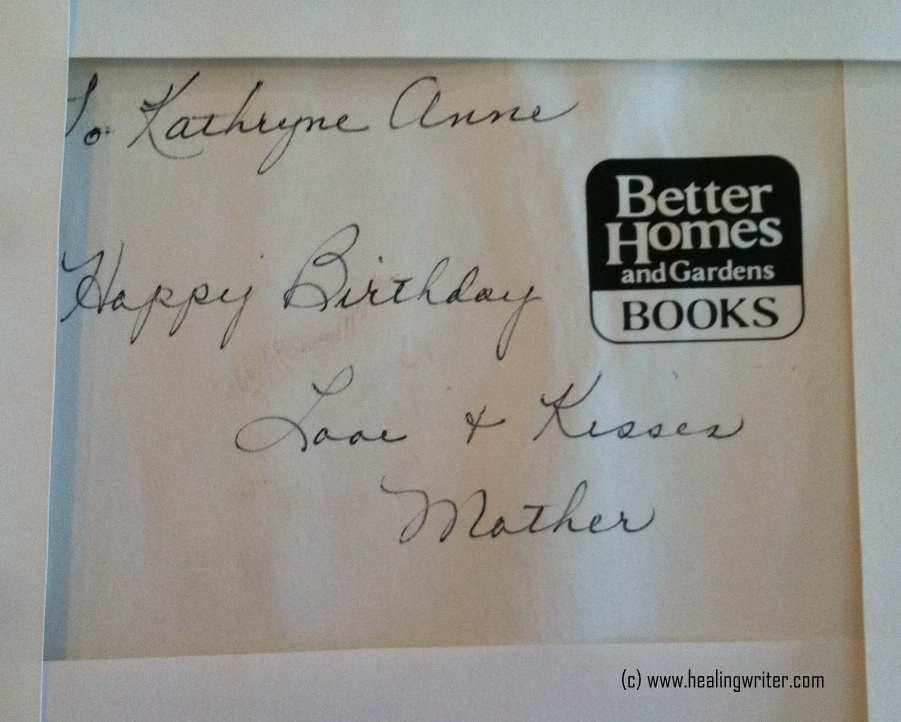 To Kathryne Anne
Better
Homes
and Gardens
BOOKS
Happy Birthday
Love & Kisses
Mother
(c) www.healingwriter.com